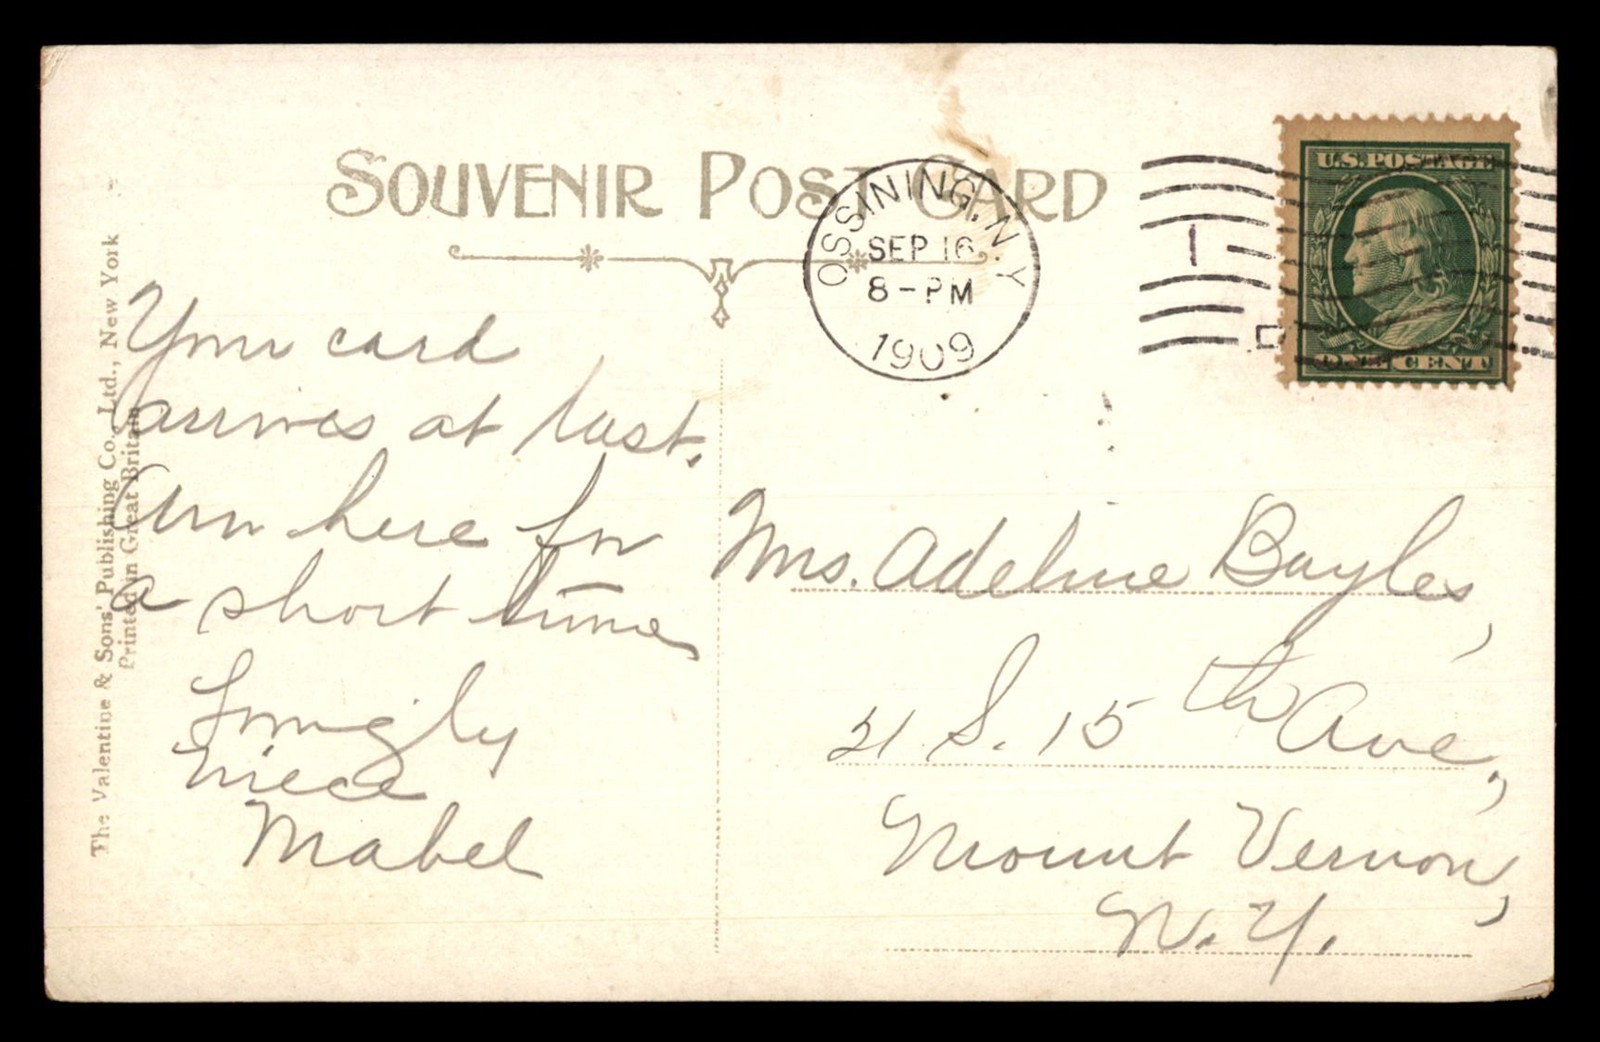 SOUVENIR POST CARD
OSSINING, N.Y.
SEP 16
8-PM
1909
1
D
U.S. POSTAGE
ONE CENT
The Valentine & Sons' Publishing Co., Ltd., New York
Printed in Great Britain
Your card
arrives at last.
Am here for
a short time
Lovingly
niece
Mabel
Mrs. Adeline Bayles,
21 S. 15th Ave.,
Mount Vernon,
N.Y.